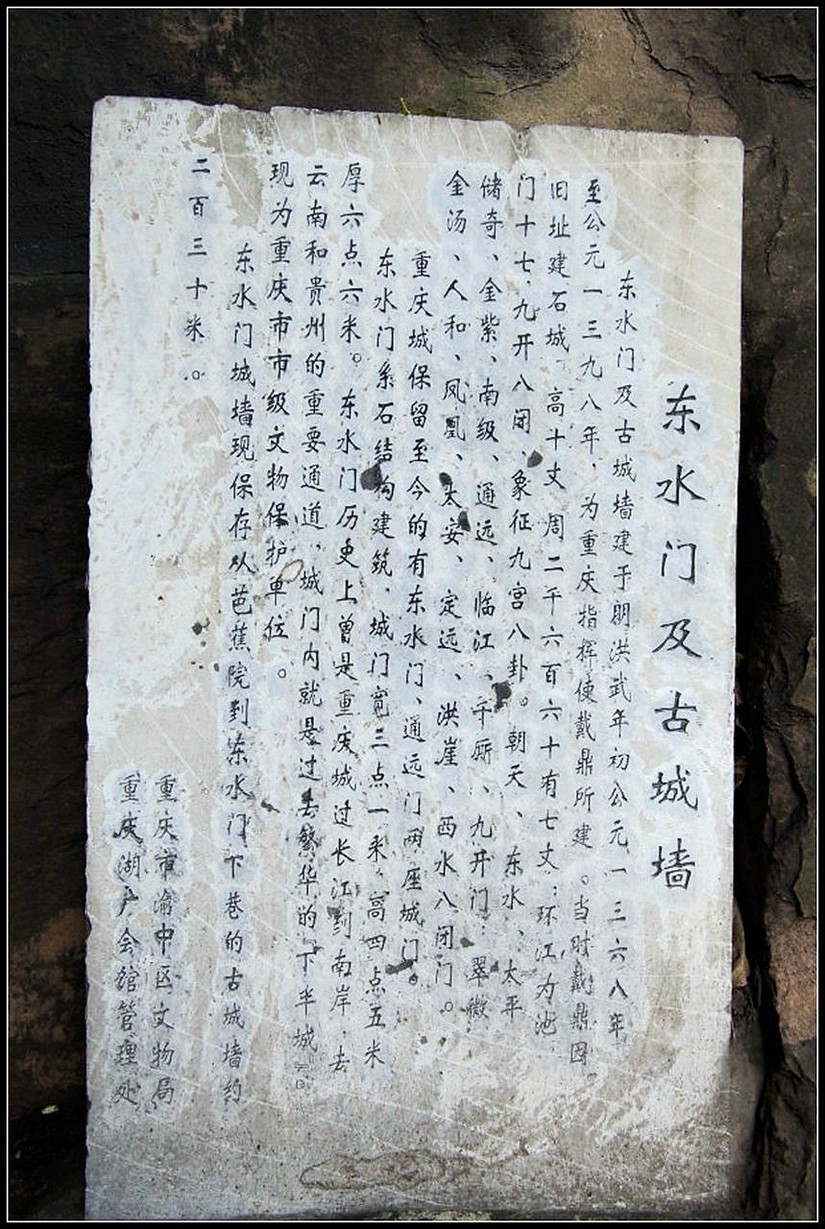 东水门及古城墙
东水门及古城墙建于明洪武年初公元一三六八年
至公元一三九八年，为重庆指挥使戴鼎所建。当时戴鼎因
旧址建石城，高十丈周二千六百六十有七丈；环江为池，
门十七，九开八闭、象征九宫八卦。朝天、东水、太平
储奇、金紫、南级、通远、临江、千厮、九开门，翠微
金汤、人和、凤凰、太安、定远、洪崖、西水八闭门。
重庆城保留至今的有东水门、通远门两座城门。
东水门系石结构建筑，城门宽三点一米，高四点五米
厚六点六米。东水门历史上曾是重庆城过长江到南岸，去
云南和贵州的重要通道，城门内就是过去繁华的下半城。
现为重庆市市级文物保护单位。
东水门城墙现保存从芭蕉院到东水门下巷的古城墙约
二百三十米。
重庆市渝中区文物局
重庆湖广会馆管理处